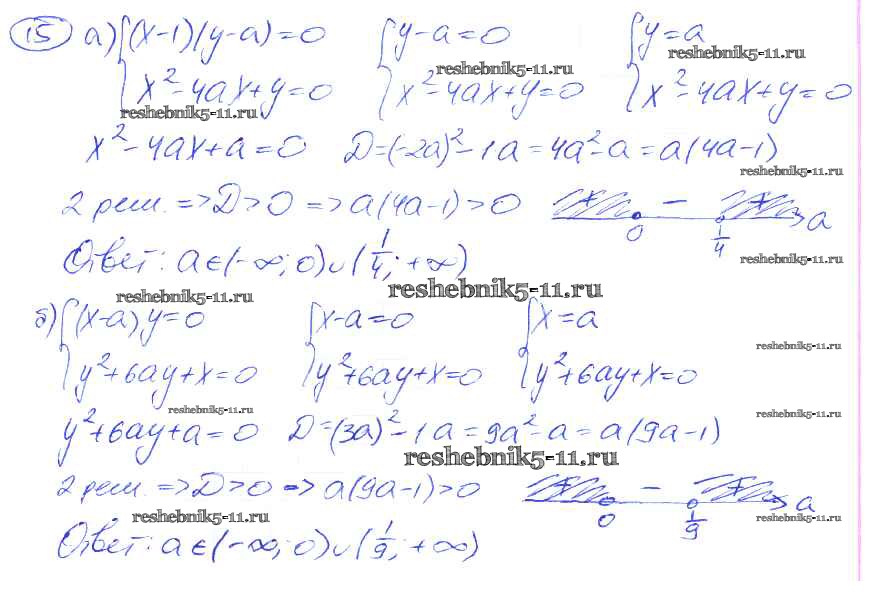 15 а) {(x-1)(y-a)=0 {y-a=0 {y=a
x²-4ax+y=0 x²-4ax+y=0 x²-4ax+y=0
reshebnik5-11.ru reshebnik5-11.ru reshebnik5-11.ru
x²-4ax+a=0 D=(-2a)²-1a=4a²-a=a(4a-1)
reshebnik5-11.ru
2 реш. =>D>0 =>a(4a-1)>0 + - + a
0 1/4
Ответ: a∈(-∞;0)∪(1/4;+∞)
reshebnik5-11.ru
reshebnik5-11.ru reshebnik5-11.ru
б) {(x-a)y=0 {x-a=0 {x=a
reshebnik5-11.ru
y²+6ay+x=0 y²+6ay+x=0 y²+6ay+x=0
reshebnik5-11.ru reshebnik5-11.ru
y²+6ay+a=0 D=(3a)²-1a=9a²-a=a(9a-1)
reshebnik5-11.ru
2 реш. =>D>0 =>a(9a-1)>0 + - + a
0 1/9
reshebnik5-11.ru reshebnik5-11.ru
Ответ: a∈(-∞;0)∪(1/9;+∞)